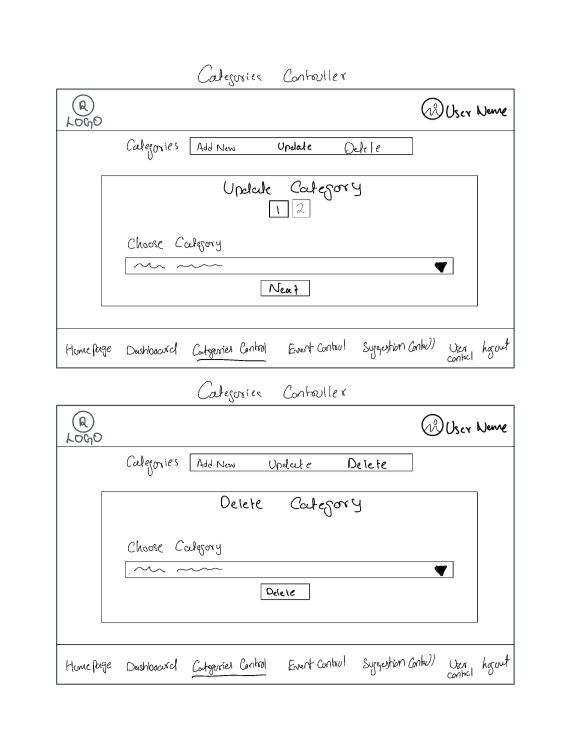 Categories Controller
R
LOGO
User Name
Categories Add New Update Delete
Update Category
1 2
Choose Category
Next
HomePage Dashboard Categories Control Event Control Suggestion Control User control logout
Categories Controller
R
LOGO
User Name
Categories Add New Update Delete
Delete Category
Choose Category
Delete
HomePage Dashboard Categories Control Event Control Suggestion Control User control logout